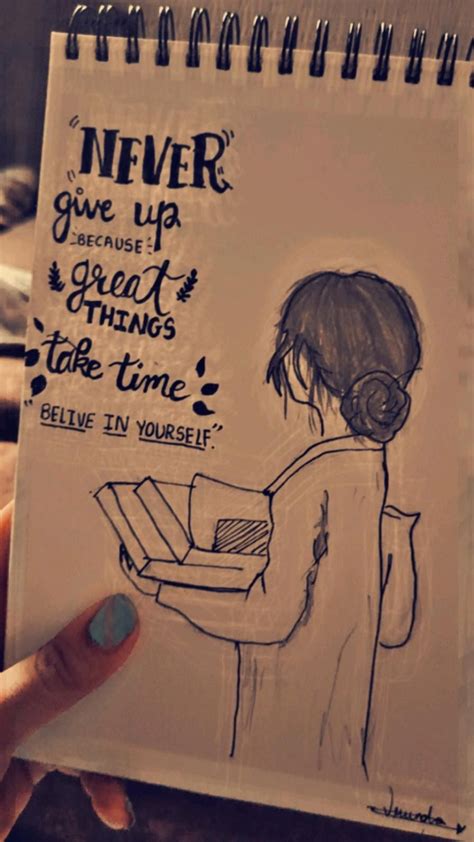 "NEVER"
give up
BECAUSE
great
THINGS
take time
"BELIVE IN YOURSELF"